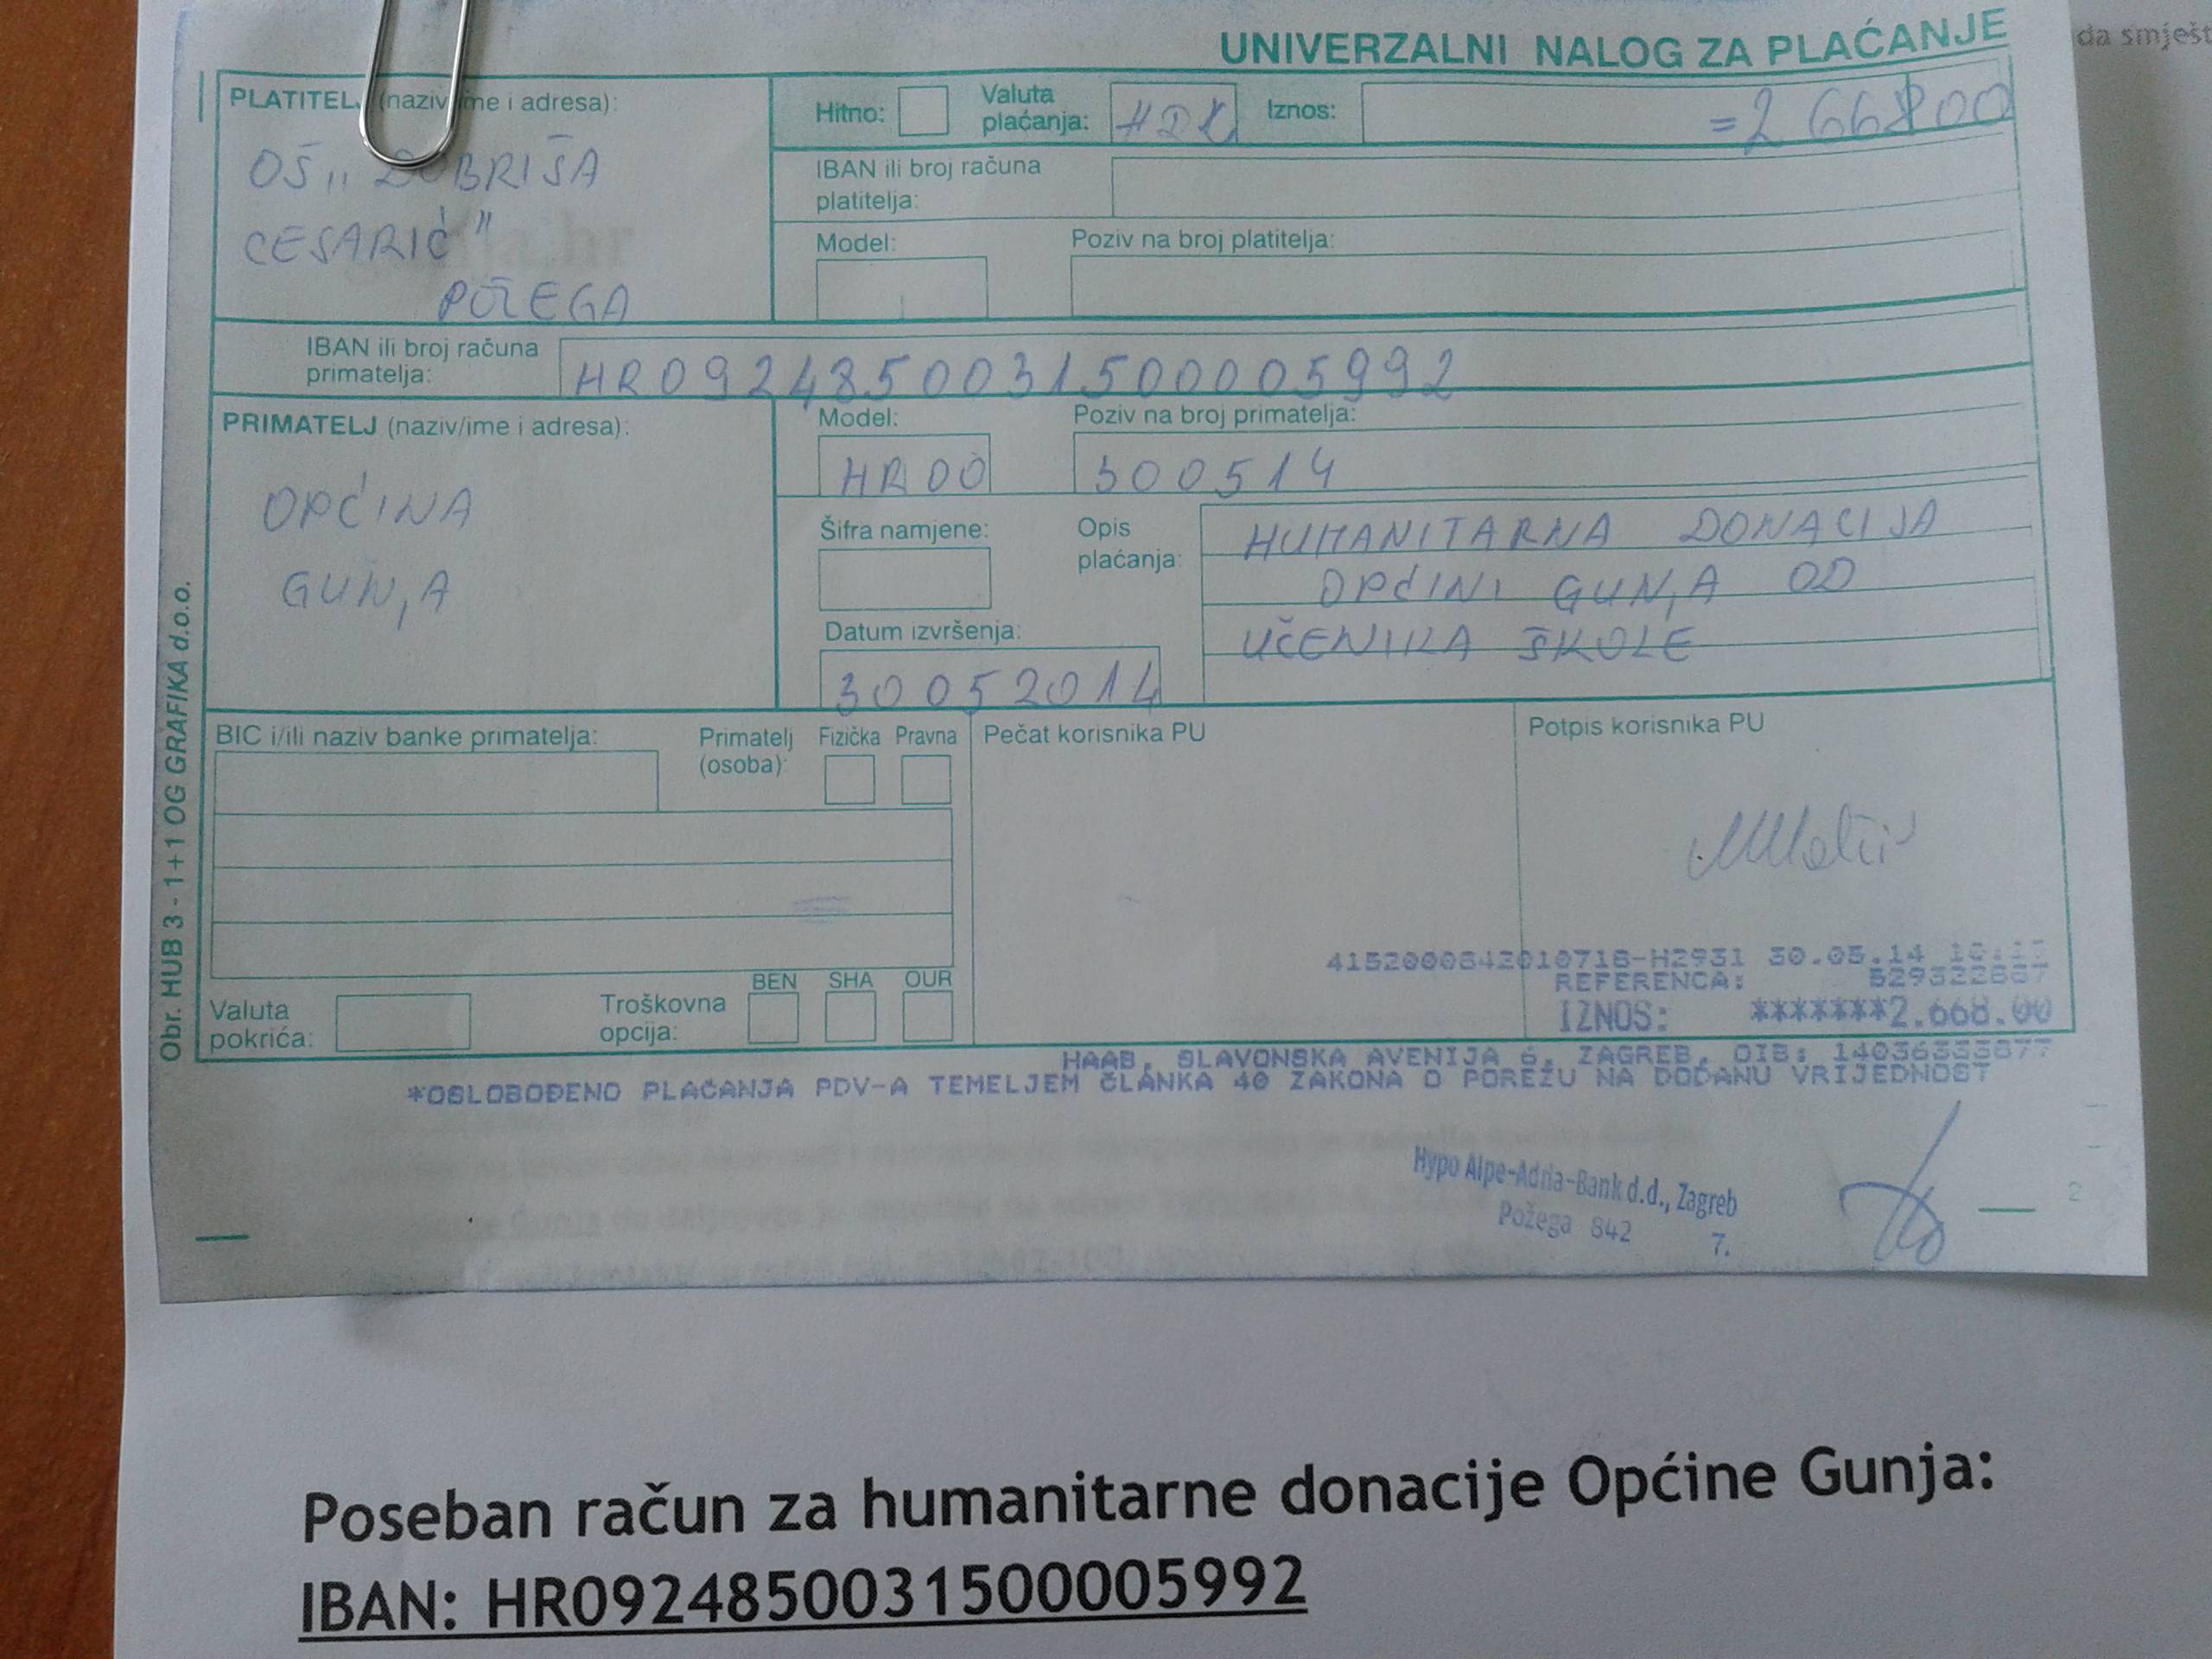 UNIVERZALNI NALOG ZA PLAĆANJE
da smješt
PLATITELJ (naziv/ime i adresa):
OŠ „DOBRIŠA
CESARIĆ"
POŽEGA
Hitno:
Valuta plaćanja: HRK
Iznos: =2 66800
IBAN ili broj računa
platitelja:
Model:
Poziv na broj platitelja:
IBAN ili broj računa
primatelja:
HR0924850031500005992
PRIMATELJ (naziv/ime i adresa):
OPĆINA
GUNJA
Model:
HR00
Poziv na broj primatelja:
300514
Šifra namjene:
Opis
plaćanja:
HUMANITARNA DONACIJA
OPĆINI GUNJA OD
UČENIKA ŠKOLE
Datum izvršenja:
30052014
BIC i/ili naziv banke primatelja:
Primatelj
(osoba):
Fizička Pravna
Pečat korisnika PU
Potpis korisnika PU
Valuta
pokrića:
Troškovna
opcija:
BEN SHA OUR
Obr. HUB 3 - 1+1 OG GRAFIKA d.o.o.
30.05.14
REFERENCA:
IZNOS: *******2.668.00
HAAB, SLAVONSKA AVENIJA 6, ZAGREB, OIB: 14036333877
*OSLOBOĐENO PLAĆANJA PDV-A TEMELJEM ČLANKA 40 ZAKONA O POREZU NA DODANU VRIJEDNOST
Hypo Alpe-Adria-Bank d.d., Zagreb
Požega 842 7.
2
Poseban račun za humanitarne donacije Općine Gunja:
IBAN: HR0924850031500005992